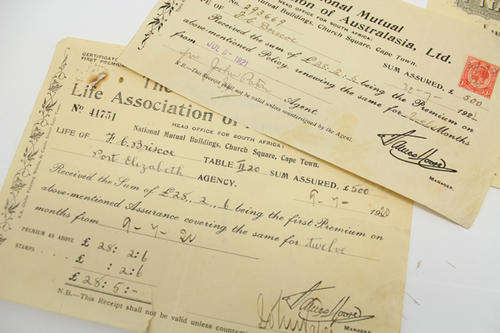 National Mutual
of Australasia, Ltd.
HEAD OFFICE FOR SOUTH AFRICA
Mutual Buildings, Church Square, Cape Town.
LIFE OF
Briscoe
SUM ASSURED, £ 500
Received the sum of £28.2.6 being the Premium on
above-mentioned Policy renewing the same for Months
from
JUL 1921
Agent.
N.B.—This Receipt shall not be valid unless countersigned by the Agent.
MANAGER.
CERTIFICATE
FIRST PREMIUM
The
Life Association of
HEAD OFFICE FOR SOUTH AFRICA
No 41751
National Mutual Buildings, Church Square, Cape Town.
LIFE OF F.C. Briscoe TABLE II20 SUM ASSURED, £500
Port Elizabeth AGENCY. 9-7-1920
Received the Sum of £28.2.6 being the first Premium on
above-mentioned Assurance covering the same for twelve
months from 9-7-20
PREMIUM AS ABOVE £ 28:2:6
STAMPS £ :2:6
£ 28:5:-
N.B.—This Receipt shall not be valid unless
MANAGER.